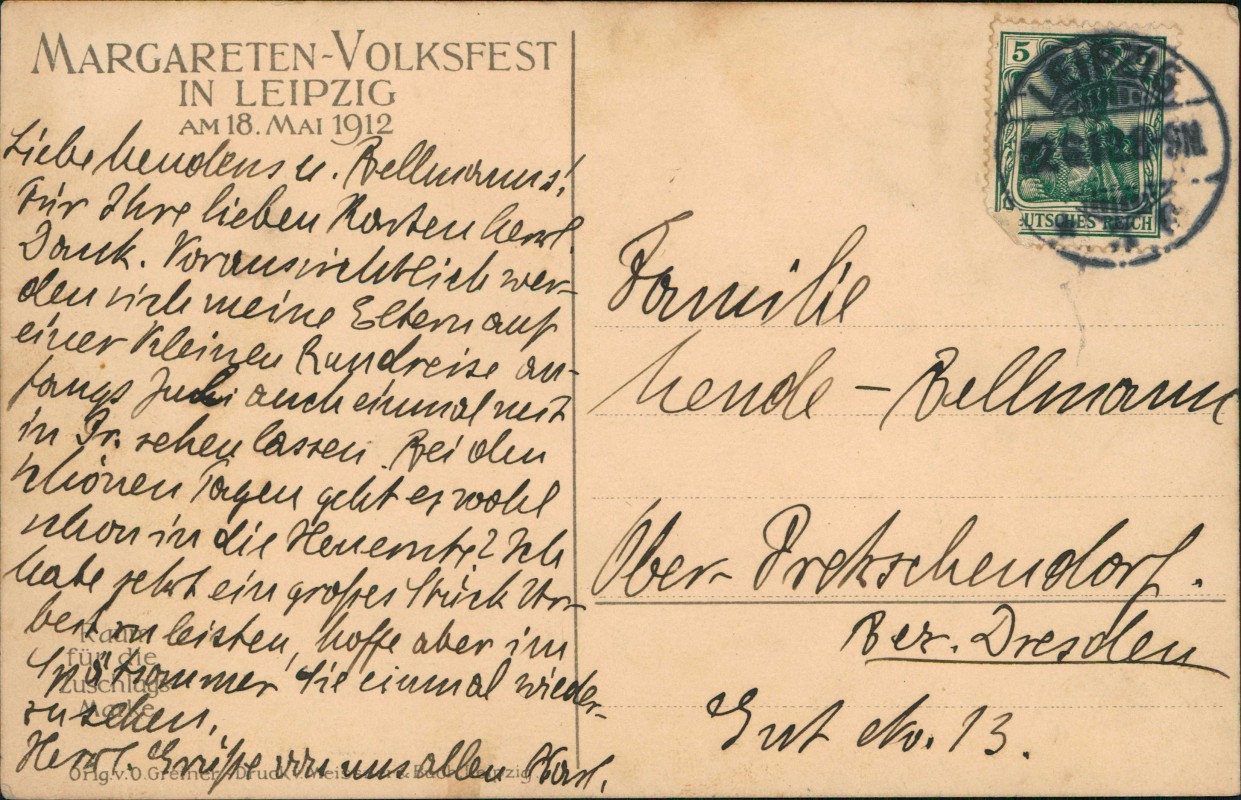 MARGARETEN-VOLKSFEST
IN LEIPZIG
AM 18. MAI 1912
Liebe Hendens u. Bellmanns!
Für Ihre lieben Karten herzl.
Dank. Voraussichtlich wer-
den sich meine Eltern auf
einer kleinen Rundreise an-
fangs Juli auch einmal mit
in Pr. sehen lassen. Bei den
schönen Tagen geht es wohl
schon in die Heuernte? Ich
habe jetzt ein großes Stück Ar-
beit zu leisten, hoffe aber im
Spätsommer Sie einmal wieder-
zusehen.
Herzl. Grüße von uns allen
Raum
für die
Zuschlags
Marke
Orig. v. O. Greiner. Druck v. & Leipzig
5
DEUTSCHES REICH
LEIPZIG
Familie
Hende - Bellmann
Ober-Pretzschendorf.
Bez. Dresden
Gut No. 13.